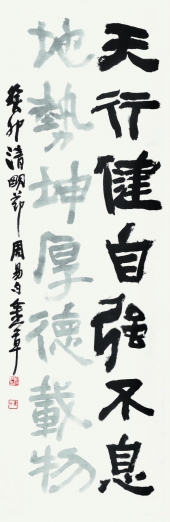 天行健自强不息
地勢坤厚德載物
癸卯清明節周易句金章